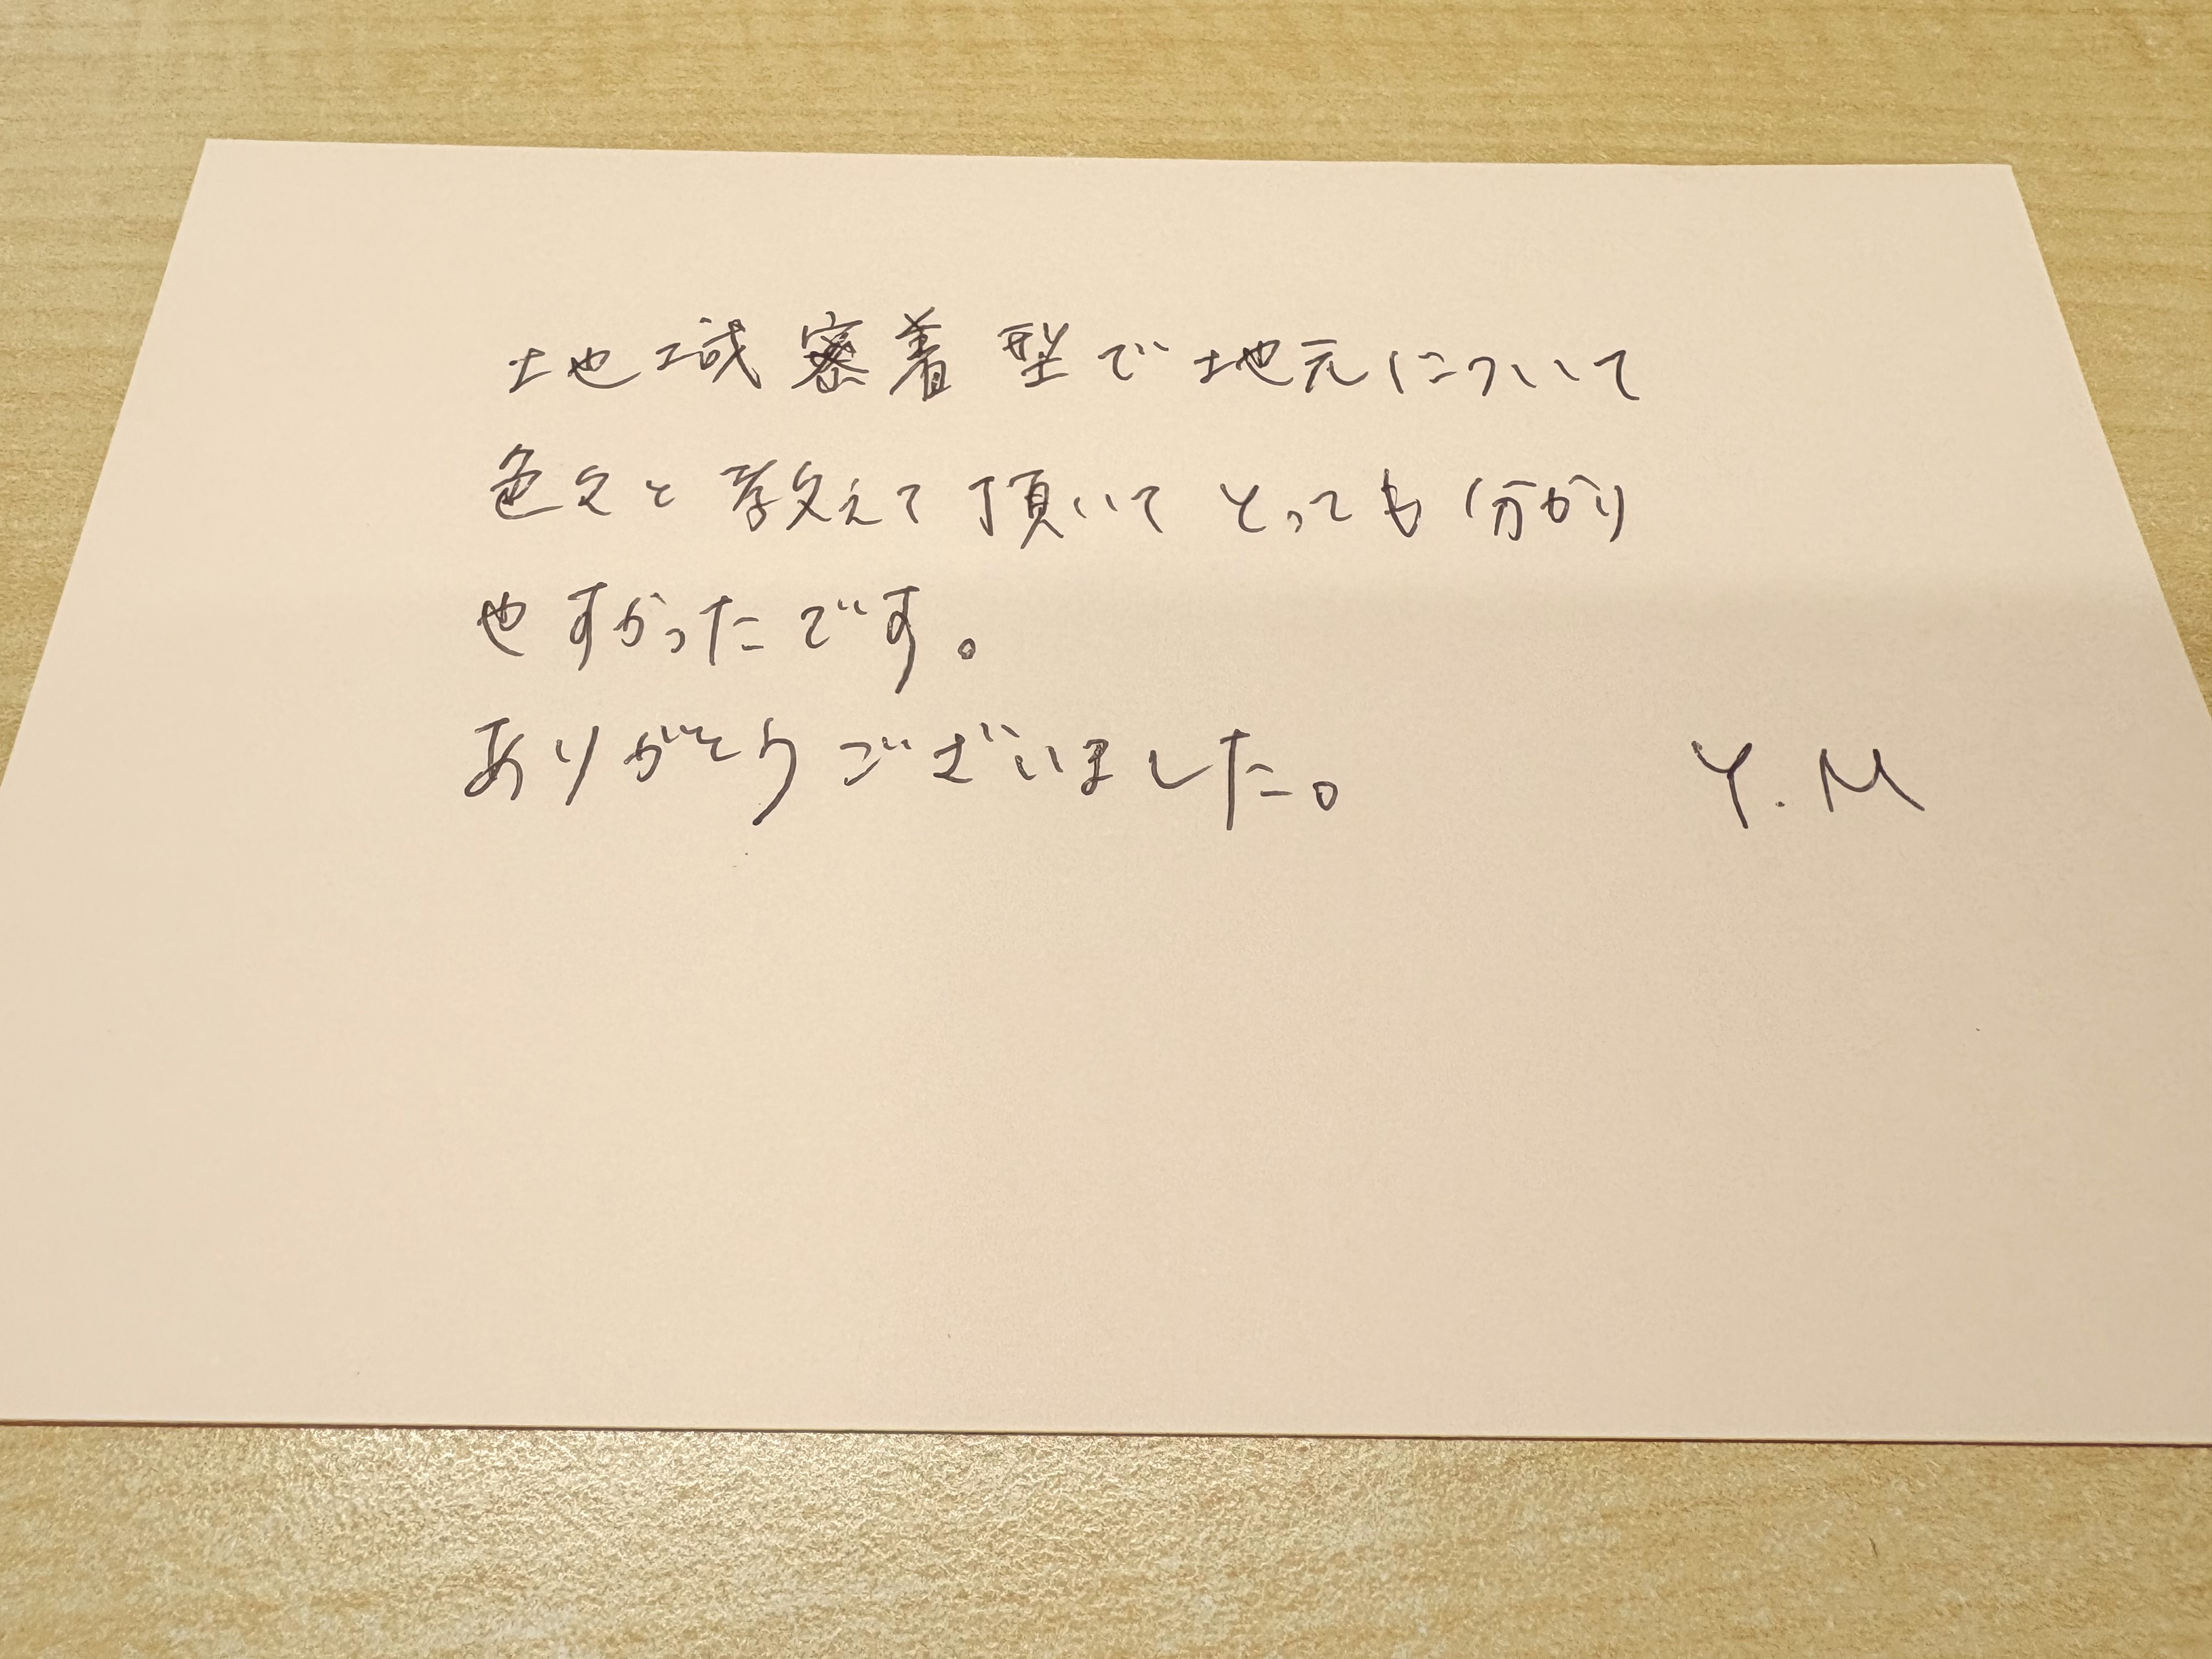 地域密着型で地元について
色々と教えて頂いてとっても分かり
やすかったです。
ありがとうございました。 Y.M